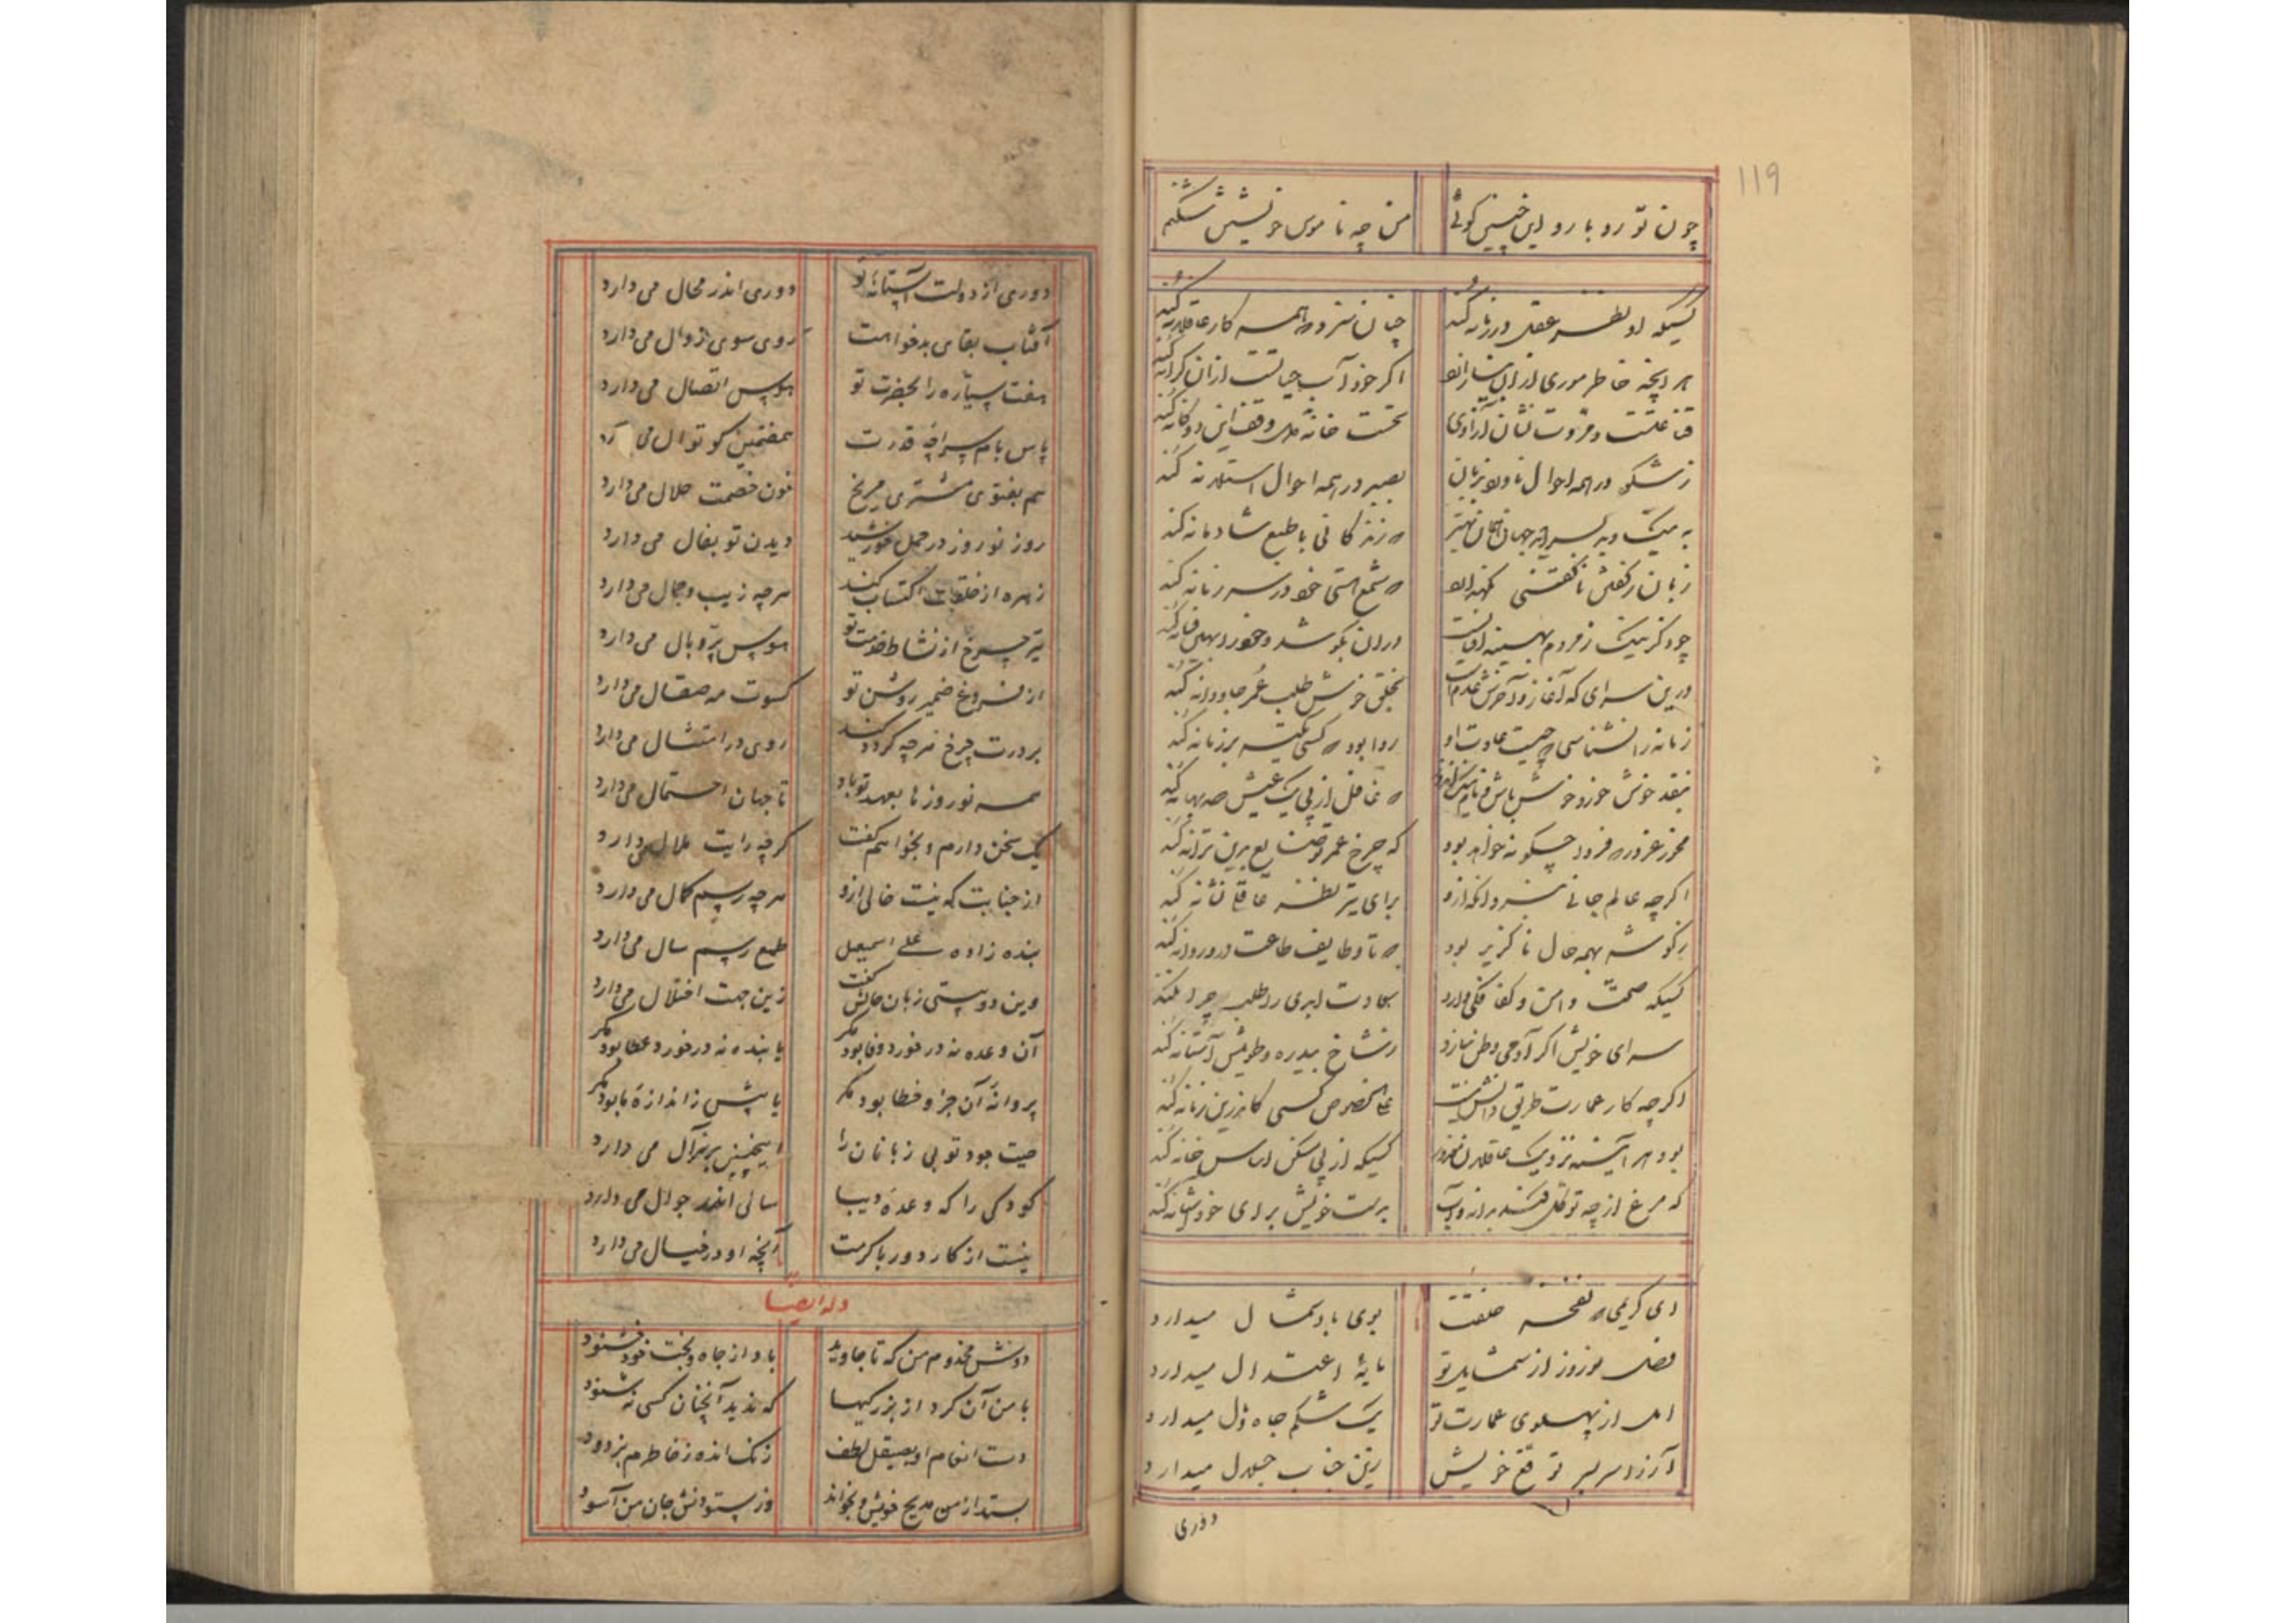 119
چون تو رو بارو این چنین کوئی من چه ناموس خویش شکنم
کسیکه او نظر عقل در زمانه کند چنان سزد همه کار عاقلانه کند
هر آنچه خاطر موری از آن اکر خود آب حیاتست ازان کرانه کند
قناعتست و مروت نشان آزادی نخست خانه وقف این دوکانه کند
ز شکر در همه احوال بصبر در همه احوال کند
به نیک و بد بسر جهان که زندکانی با طبع شادمانه کند
زبان ز کفتن ناکفتنی نکهدارد که شمع هستی خود در سر زبانه کند
چو ذکر نیک ز مردم دران بکوشد و خود را بدان فسانه کند
درین سرای که آغاز و آخرش عدمست بخلق خوش طلب عمر جاودانه کند
زمانه را نشناسی که چیست عادت او روا بود که کسی تکیه بر زمانه کند
بنقد خوش خور و خوش باش و نام که غافل از پی یک عیش صد بهانه کند
مخور غرور که فردا چکونه خواهد بود که چرخ عمر تو ضایع برین ترانه کند
اکرچه عالم جانی ازو برای تیر نظر عاقل نشانه کند
ز کوشه بهمه حال ناکزیر بود که تا وظایف طاعت درو روانه کند
کسیکه صحت و امن و کفافکی دارد سعادت ابدی را طلب چرا نکند
سرای خویش اکر آدمی وطن سازد ز شاخ بیدره و طویلش آستانه کند
اکرچه کار عمارت طریق دانش نیست علی الخصوص کسی کاندرین زمانه کند
بود هر آینه نزدیک عاقلان معذور کسیکه از پی مسکن اساس خانه کند
که مرغ از چه توکل کند بدانه و آب بدست خویش برای خود آشیانه کند
ای کریمی که نفحه خلقت بوی باد شمال میدارد
فصل نوروز از شمایل تو مایهٔ اعتدال میدارد
امل از پهلوی عمارت تو یک شکم جاه و ذل میدارد
آرزو سر بسر توقع خویش زین جناب جلال میدارد
دوری
دوری از دولت آستانهٔ تو دوری اندر محال می دارد
آفتاب بقای بدخواهت روی سوی زوال می دارد
هفت سیاره را بحضرت تو هوس اتصال می دارد
پاس بام سراچهٔ قدرت هفتمین کوتوال می
هم بفتوی مشتری مریخ خون خصمت حلال می دارد
روز نوروز در حمل خورشید دیدن تو بفال می دارد
زهره از خلقت اکتساب کند هرچه زیب و جمال می دارد
تیر چرخ از نشاط خدمت تو هوس پر و بال می دارد
از فروغ ضمیر روشن تو کسوت مه صقال می دارد
بر درت چرخ هرچه کردد کند روی در امتثال می دارد
همه نوروزها بعهد تو باد تا جهان احتمال می دارد
یک سخن دارم و بخواهم کفت کرچه رایت ملال می دارد
از جنابت که نیست خالی ازو هرچه رسم کمال می دارد
بنده زاده علی اسمعیل طمع رسم سال می دارد
وین دو بیتی زبان حالش کفت زین جهت اختلال می دارد
آن وعده نه در خورد وفا بود مکر یا بنده نه در خورد عطا بود مکر
پروانهٔ آن جز و خطا بود مکر یا بیش ز اندازهٔ ما بود مکر
صیت جود تو بی زبانان را اینچنین بر سؤال می دارد
کودکی را که وعدهٔ دیبا سالی اندر جوال می دارد
نیست از کار دور با کرمت آنچه او در خیال می دارد
وله ایضا
دوش مخدوم من که تا جاوید باد از جاه و بخت خود خشنود
با من آن کرد از بزرکیها که ندید آنچنان کسی نه شنود
دست انعام او بصیقل لطف زنک اندوه ز خاطرم بزدود
بستد از من مدیح خویش و بخواند وز ستودنش جان من آسود